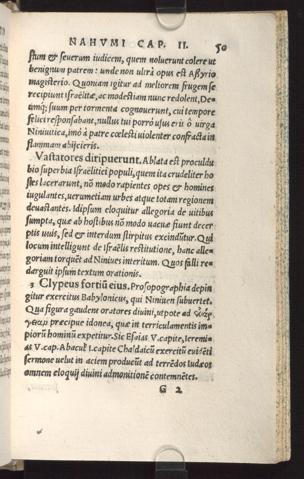 NAHVMI CAP. II. 50
stum & seuerum iudicem, quem noluerunt colere ut
benignum patrem: unde non ultrà opus est Assyrio
magisterio. Quoniam igitur ad meliorem frugem se
recipiunt Israëlitæ, ac modestiam nunc redolent, De-
umq; suum per tormenta cognouerunt, cui tempore
felici responsabant, nullus tui porrò usus erit ô uirga
Niniuitica, imò à patre cœlesti uiolenter confracta in
flammam abijcieris.
Vastatores diripuerunt. Ablata est proculdu
bio superbia Israëlitici populi, quem ita crudeliter ho
stes lacerarunt, nõ modo rapientes opes & homines
iugulantes, uerumetiam urbes atque totam regionem
deuastantes. Idipsum eloquitur allegoria de uitibus
sumpta, quæ ab hostibus nõ modo uacuæ fiunt decer
ptis uuis, sed & interdum stirpitus excindũtur. Qui
locum intelligunt de Israëlis restitutione, hanc alle-
goriam torquẽt ad Niniues interitum. Quos falli re-
darguit ipsum textum orationis.
3 Clypeus fortiũ eius. Prosopographia depin
gitur exercitus Babylonicus, qui Niniuen subuertet.
Qua figura gaudent oratores diuini, utpote ad
præcipue idonea, quæ in terriculamentis im-
piorũ hominũ expetitur. Sic Esaias V. capite, Ieremi-
as V. cap. Abacuk I. capite Chaldaicũ exercitũ
sermone uelut in aciem producũt ad terrẽdos Iudæos
omnem eloquij diuini admonitionẽ contemnẽtes.
G 2